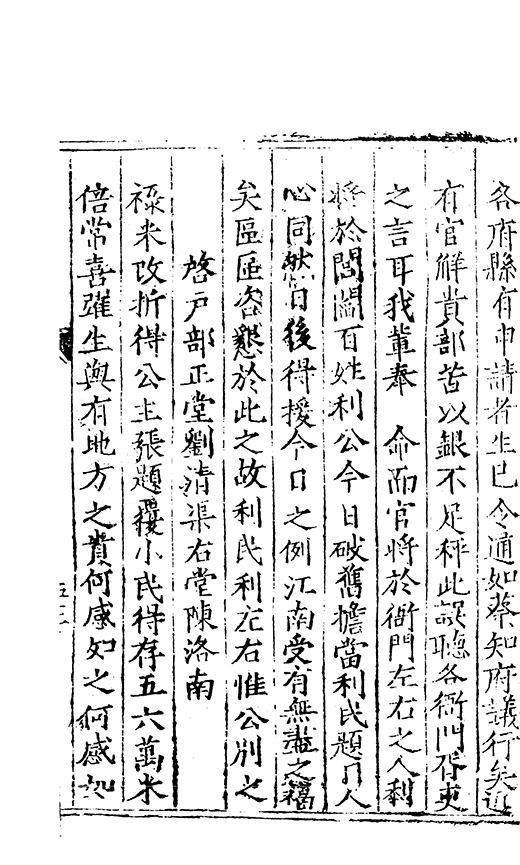 各府縣有申請者生已令通如蔡知府議行矣近
有官解貴部苦以銀不足秤此誤聽各衙門
之言耳我輩奉　命而官將於衙門左右之人利
將於閭閻百姓利公今日破舊擔當利民題目人
心同然日後得援今日之例江南受有無盡之福
矣區區咨懇於此之故利民利左右惟公別之
啓戶部正堂劉清渠右堂陳洛南
祿米改折得公主張題覆小民得存五六萬米
倍常喜躍生與有地方之責何感如之何感如